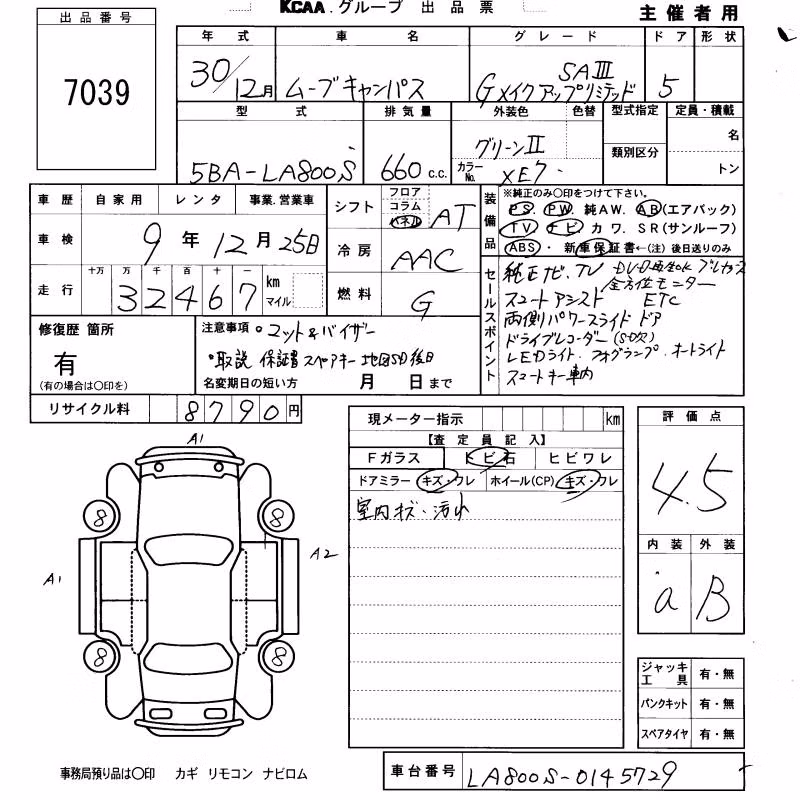 出品番号
7039
KCAA.グループ 出品票
主催者用
年式 車名 グレード ドア 形状
30/12月 ムーブキャンバス Gメイクアップリミテッド SAⅢ 5
型式 排気量 外装色 色替 型式指定 定員・積載
5BA-LA800S 660 c.c. グリーンⅡ 名
カラーNo. XE7 類別区分 トン
車歴 自家用 レンタ 事業.営業車
車検 9年12月25日
走行 十万 万 千 百 十 一 km マイル
32467
シフト フロア コラム パネル AT
冷房 AAC
燃料 G
装備品 ※純正のみ〇印をつけて下さい。
PS. PW. 純AW. AB(エアバック)
TV ナビ カワ. SR(サンルーフ)
ABS・ 新車保証書←(注) 後日送りのみ
セールスポイント
純正ナビ.TV DVD再生OK ブレカラ
全方位モニター
スマートアシスト ETC
両側パワースライドドア
ドライブレコーダー(SD欠)
LEDライト フォグランプ オートライト
スマートキー車内
修復歴 箇所
有
(有の場合は〇印を)
注意事項 ・マット&バイザー
・取説 保証書 スペアキー 地図SD後日
名変期日の短い方 月 日まで
リサイクル料 8790円
現メーター指示 km
【査定員記入】
Fガラス トビ石 ヒビワレ
ドアミラー キズ・フレ ホイール(CP) キズ・フレ
室内キズ・汚れ
評価点
4.5
内装 外装
a B
A1
8 8
A1 A2
8 8
ジャッキ工具 有・無
パンクキット 有・無
スペアタイヤ 有・無
事務局預り品は〇印 カギ リモコン ナビロム
車台番号 LA800S-0145729